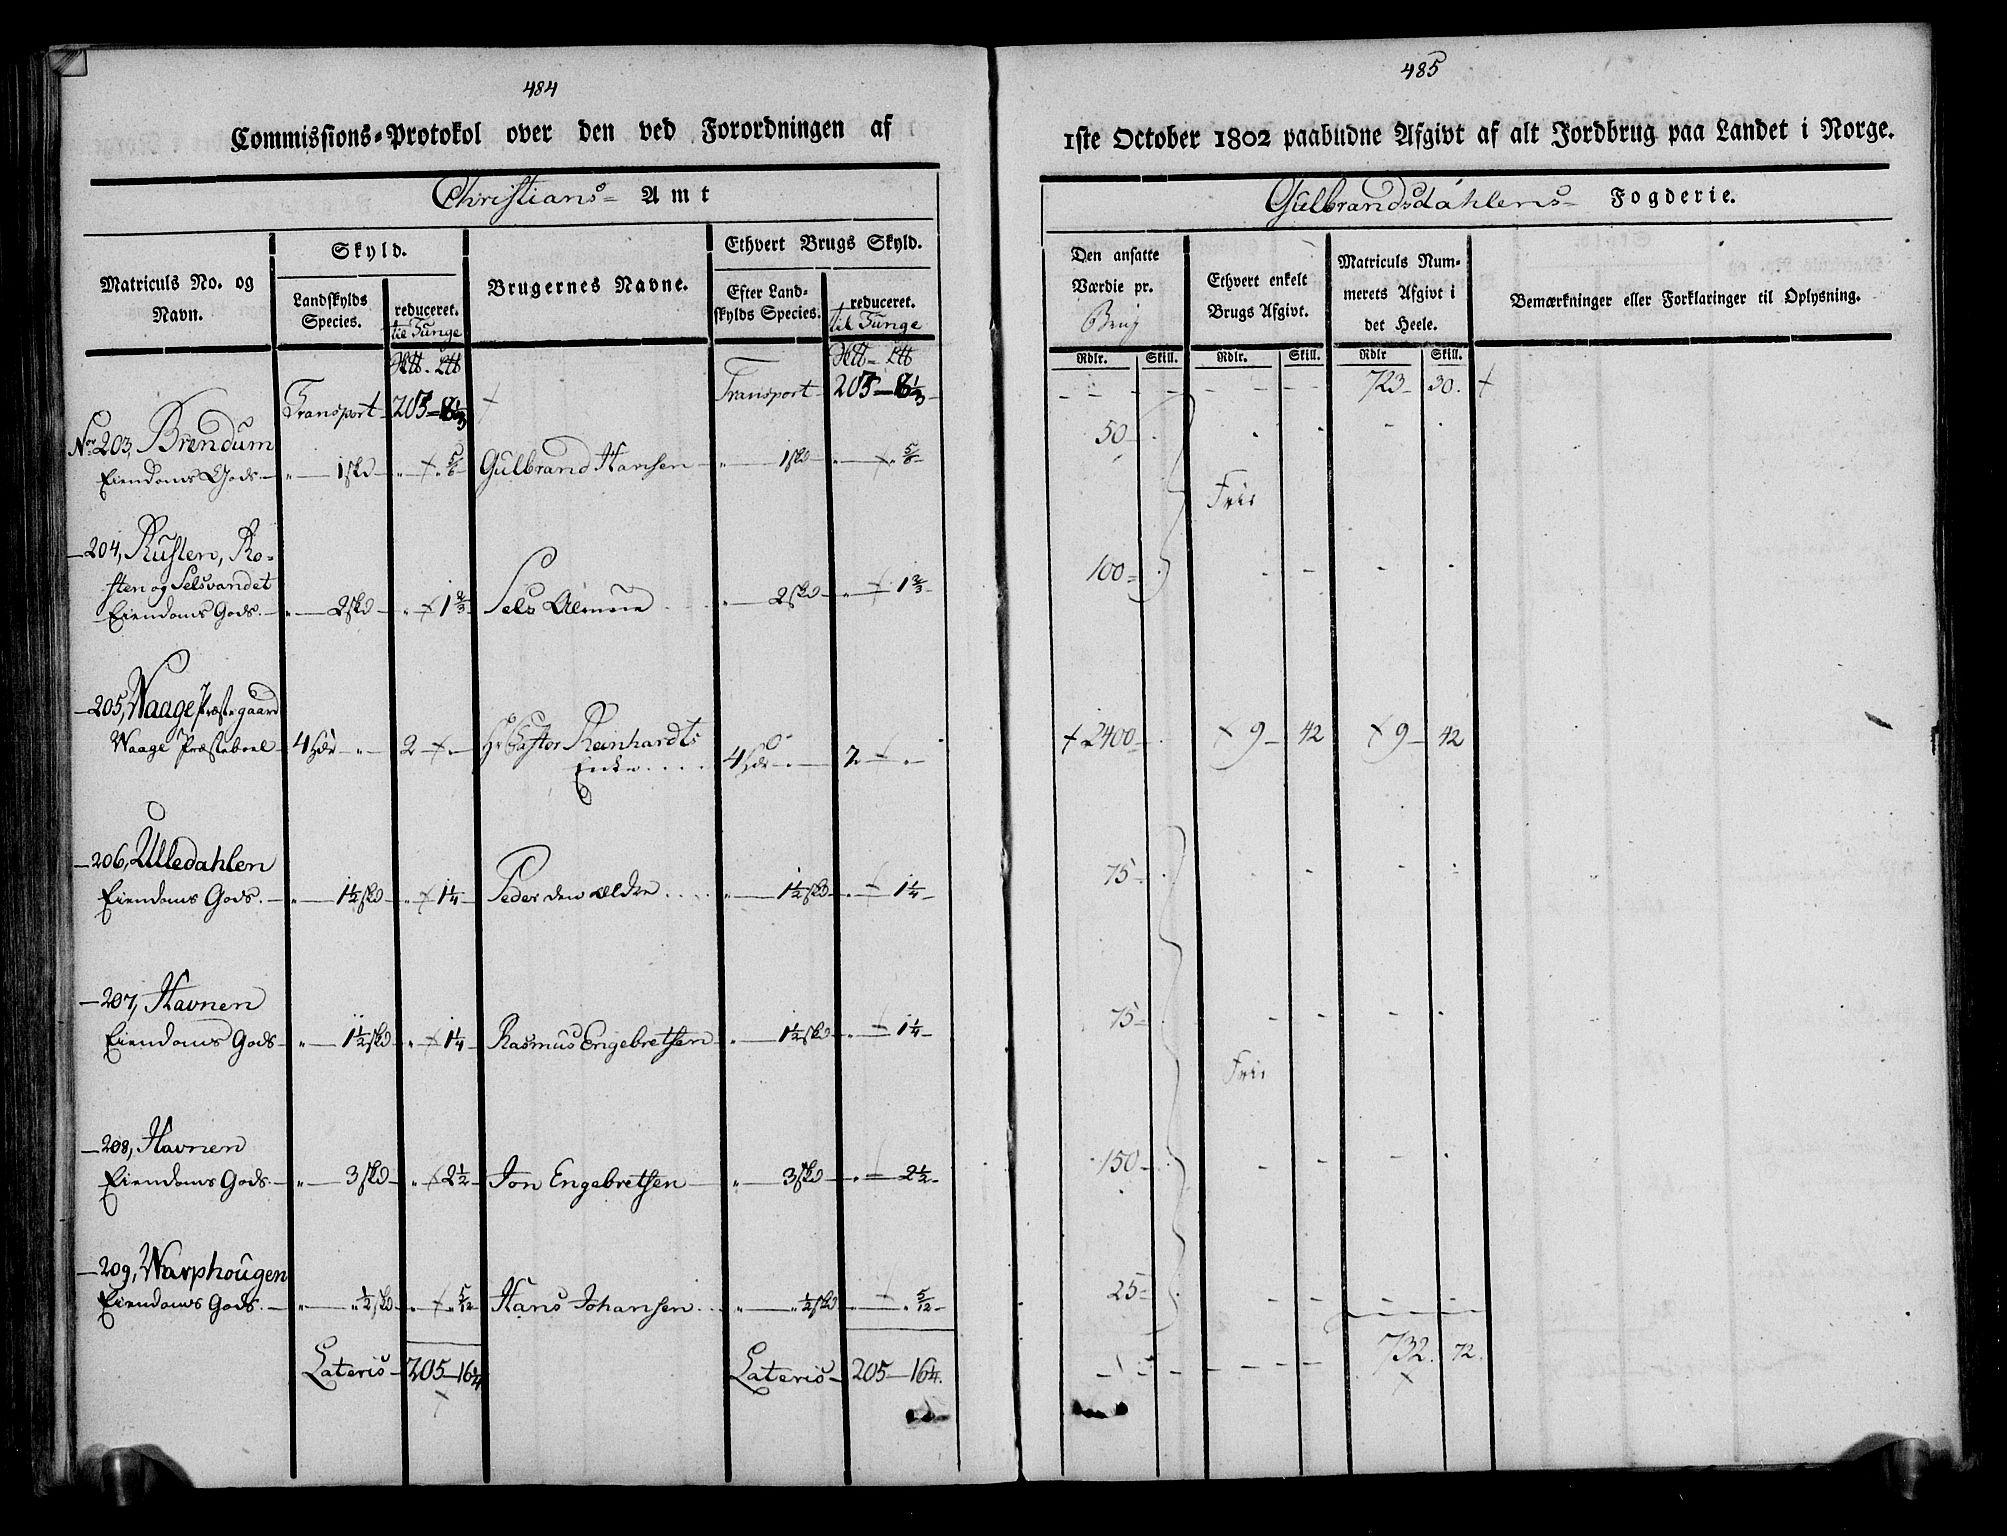 484
Commissions-Protokol over den ved Forordningen af
Christians- Amt
Matriculs No. og Navn.
Skyld.
Landskylds Species.
reduceret.
til Tunge
Brugernes Navne.
Ethvert Brugs Skyld.
Efter Landskylds Species.
reduceret.
til Tunge
Transport 203 - 8 1/3 Transport 203 - 8 1/3
No. 203, Brendum
Eiendoms Gods - " - 1 skd - " - " 5/6 Gulbrand Hansen - " - 1 skd - " - " 5/6
- 204, Rusten, Ro-
sten og Selsvandet
Eiendoms Gods. - " - 2 skd - " - 1 2/3 Sels Almue " - 2 skd - " - 1 2/3
- 205, Waage Præstegaard
Waage Præsteboel - 4 Hdr - " - 2 - " - Hr Pastor Reinhardts
Enke .... 4 Hdr - " - 2 - " -
- 206, Ulledahlen
Eiendoms Gods. - " - 1 1/2 skd - " - 1 1/4 Peder den ældre .... " - 1 1/2 skd - " - 1 1/4 -
- 207, Havnen
Eiendoms Gods - " - 1 1/2 skd - " - 1 1/4 - Rasmus Engebretsen - " - 1 1/2 skd - " - 1 1/4 -
- 208, Havnen
Eiendoms Gods. - " - 3 skd - " - 2 1/2 - Jon Engebretsen - " - 3 skd - " - 2 1/2 -
- 209, Warphougen
Eiendoms Gods. - " - " 1/2 skd - " - " 5/12 Hans Johansen ... " - " 1/2 skd - " - " 5/12 -
Lateris - 205 - 16 1/4 Lateris - 205 - 16 1/4.
485
1ste October 1802 paabudne Afgivt af alt Jordbrug paa Landet i Norge.
Gulbrandsdahlens- Fogderie.
Den ansatte Værdie pr.
Brug
Ethvert enkelt Brugs Afgivt.
Matriculs Nummerets Afgivt i det Heele.
Bemærkninger eller Forklaringer til Oplysning.
Rdlr. Skill. Rdlr. Skill. Rdlr Skill.
723 - 30.
50 -
Frie
100 -
2400 - 9 - 42 9 - 42
75 -
75 -
Frie
150 -
25 -
732. 72.